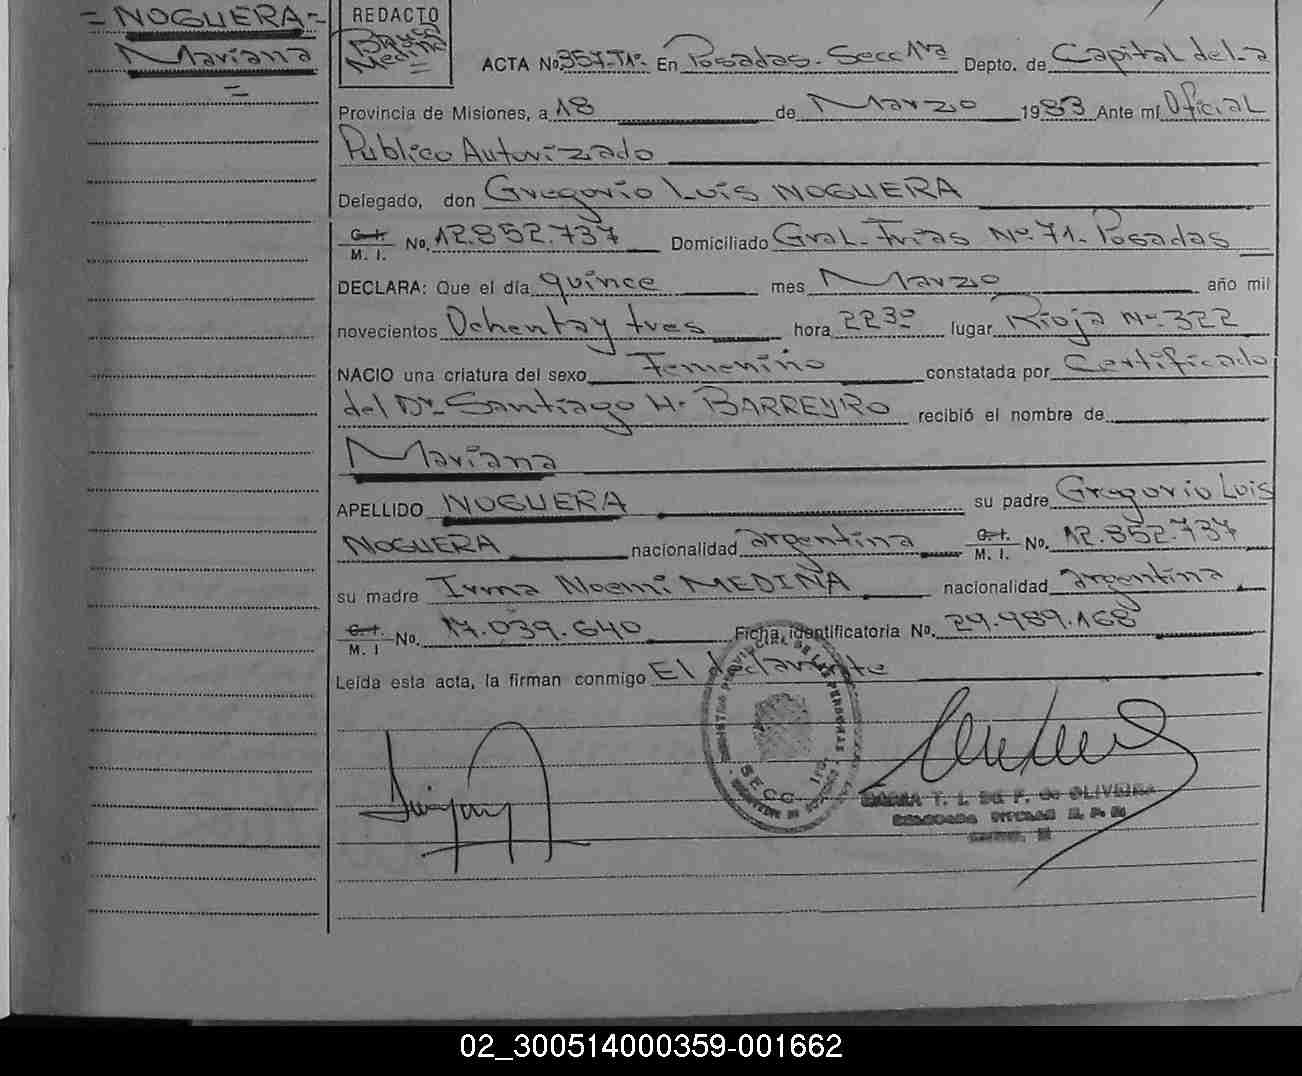 = NOGUERA =
Mariana
=
REDACTO
Medina
ACTA No 357-Tº- En Posadas. Secc 1ra Depto. de Capital del-a
Provincia de Misiones, a 18 de Marzo 1983 Ante mí Oficial
Publico Autorizado
Delegado, don Gregorio Luis NOGUERA
C.I. M. I. No. 12.852.737 Domiciliado Gral. Frias Nº 71- Posadas
DECLARA: Que el día quince mes Marzo año mil
novecientos Ochenta y tres hora 2230 lugar Rioja Nº 322
NACIO una criatura del sexo Femenino constatada por Certificado
del Dr. Santiago H. BARREYRO recibió el nombre de
Mariana
APELLIDO NOGUERA su padre Gregorio Luis
NOGUERA nacionalidad argentina C.I. M. I. No. 12.852.737
su madre Irma Noemi MEDINA nacionalidad argentina
C.I. M. I No. 17.039.640 Ficha identificatoria No. 29.989.168
Leída esta acta, la firman conmigo El declarante
REGISTRO PROVINCIAL DE LAS PERSONAS
SECC. 1ra.
T. I. DE F. de OLIVEIRA
02_300514000359-001662